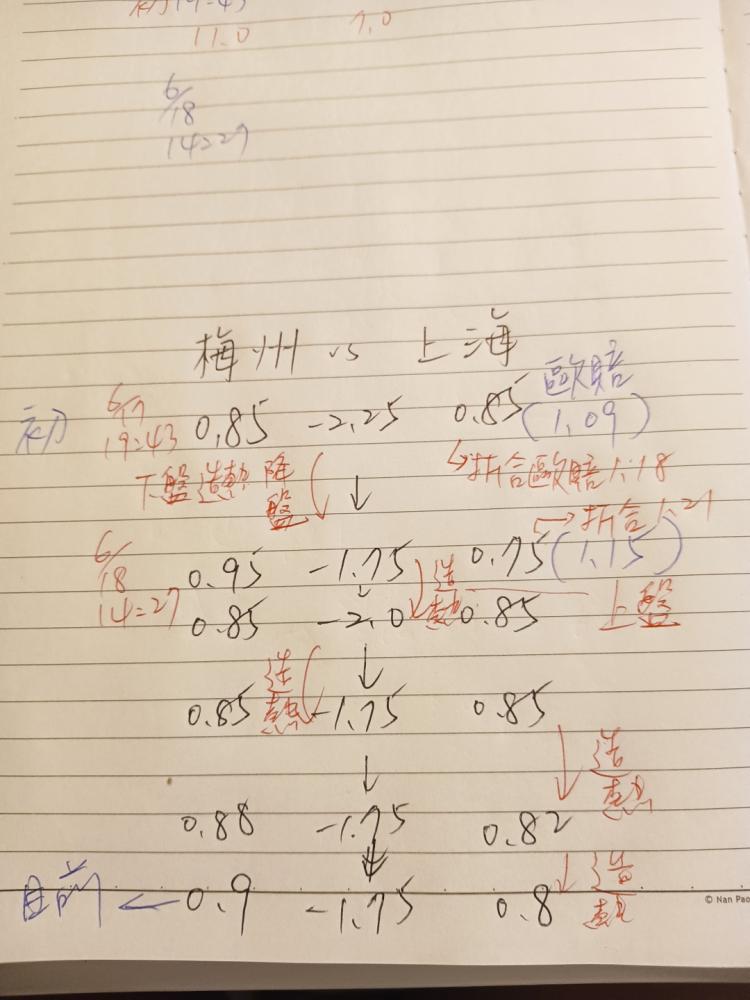 初 19:43
11.0 7.0
6/18
14:27
梅州 vs 上海
歐賠
初 6/17 19:43 0.85 -2.25 0.85 (1.09)
下盤造熱 降盤 ↓ ↳折合歐賠1.18
→折合1.27
6/18 14:27 0.95 -1.75 0.75 (1.15)
↓ 造熱
0.85 -2.0 0.85 上盤
造熱 ↓
0.85 -1.75 0.85
↓ ↓ 造熱
0.88 -1.75 0.82
↓ ↓ 造熱
目前 ← 0.9 -1.75 0.8
© Nan Pao